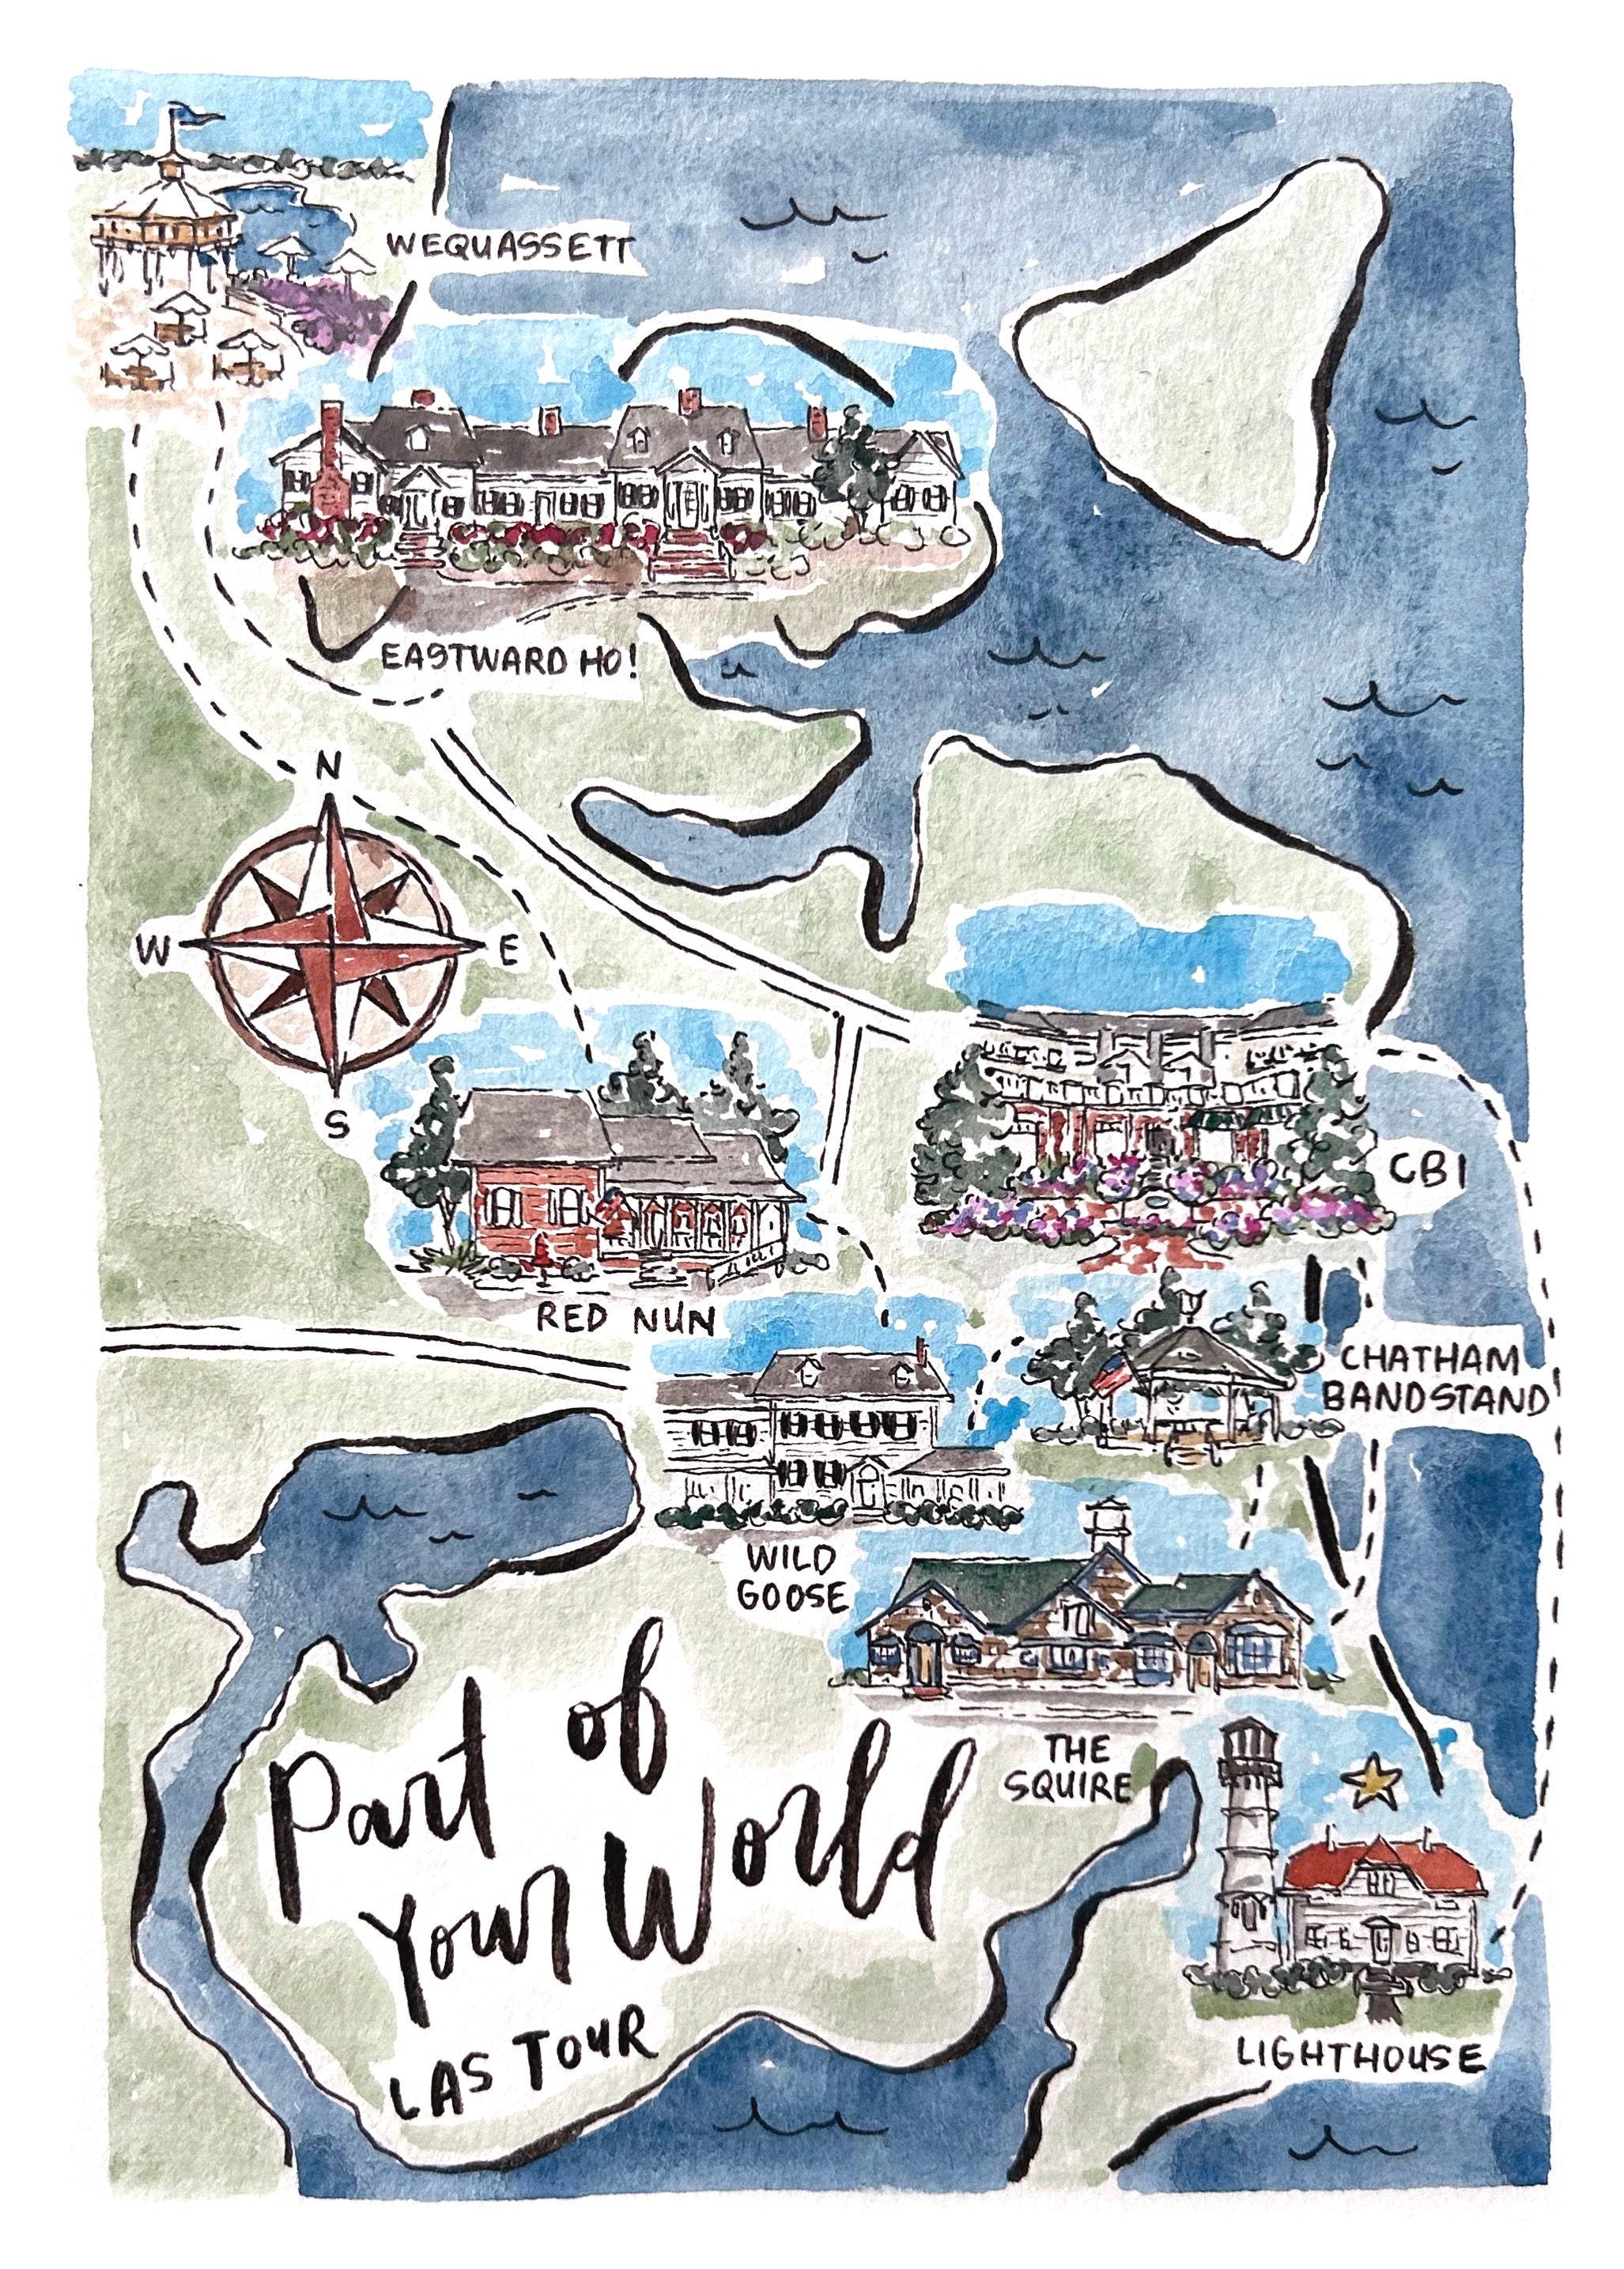 WEQUASSETT
EASTWARD HO!
N
W E
S
CBI
RED NUN
CHATHAM
BANDSTAND
WILD
GOOSE
THE
SQUIRE
Part of
Your World
LAS TOUR
LIGHTHOUSE